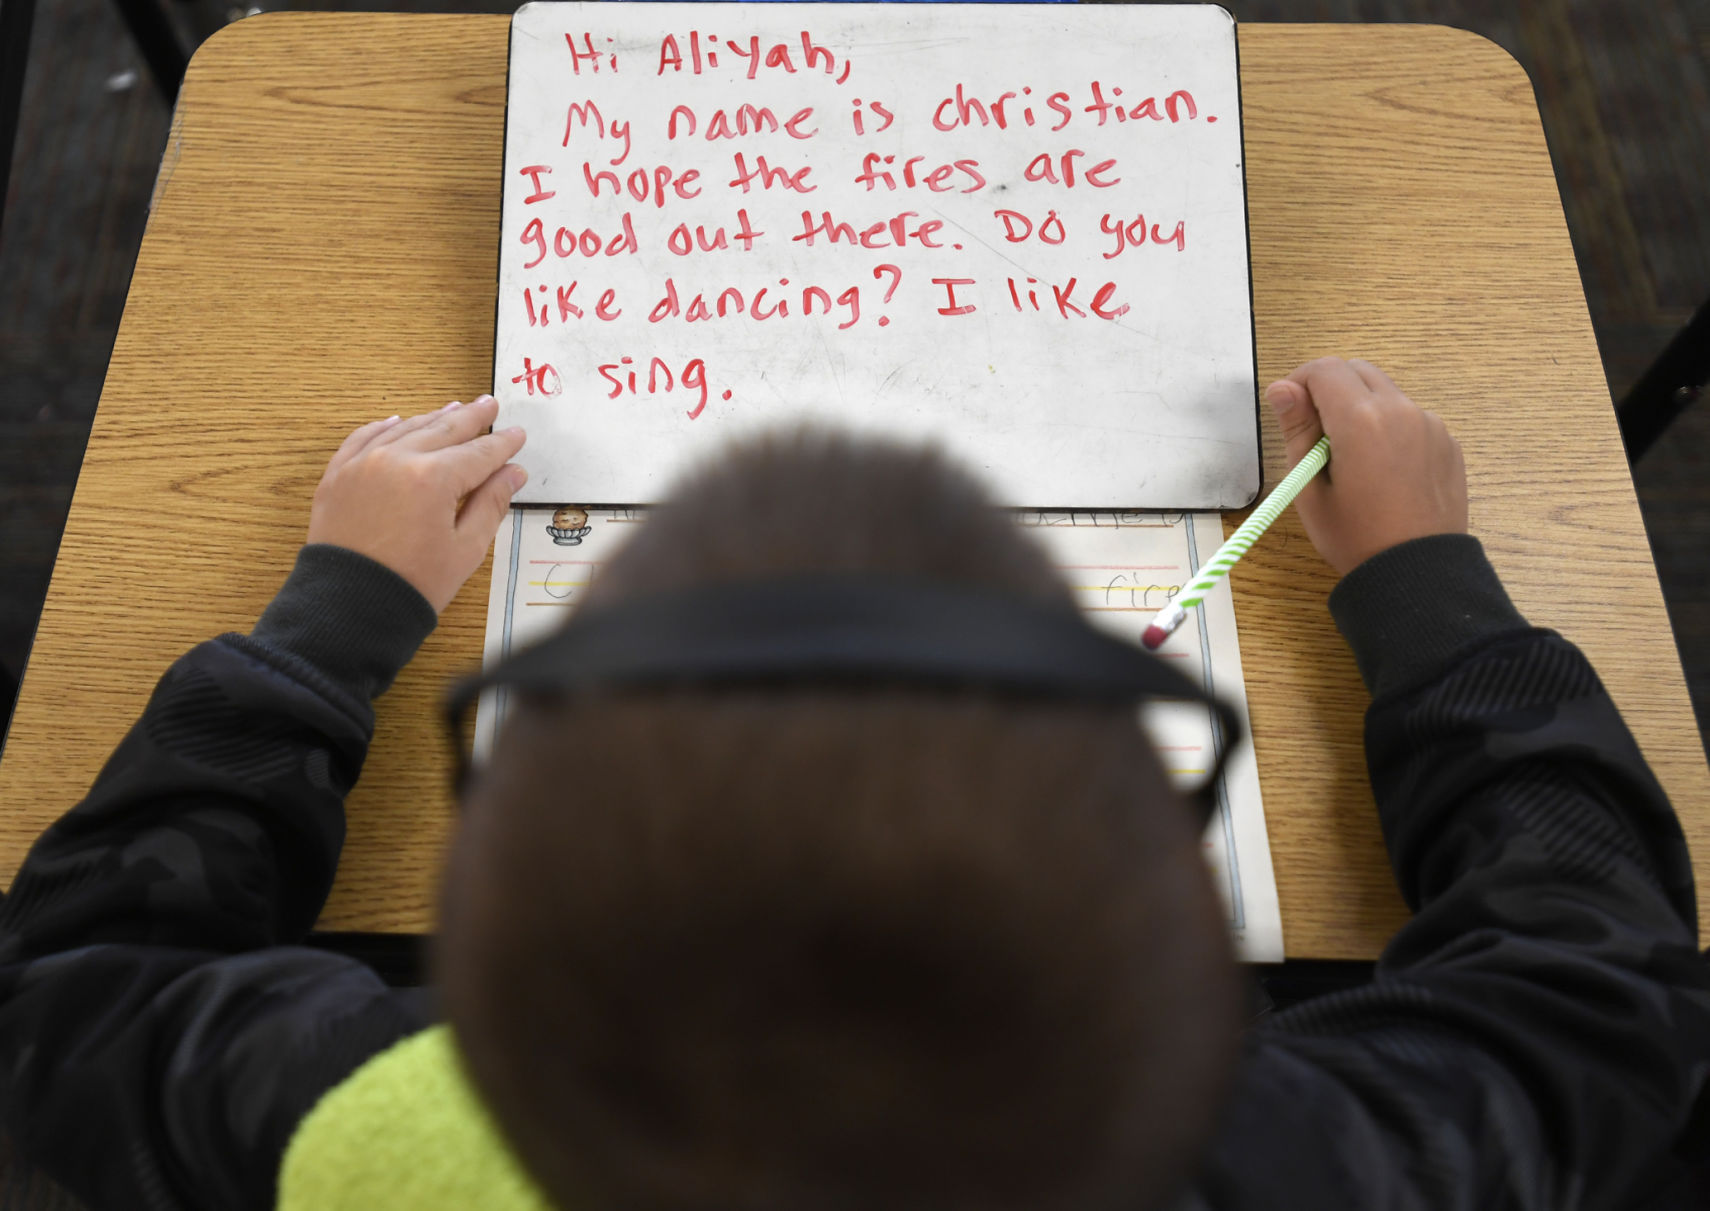 Hi Aliyah,
My name is christian.
I hope the fires are
good out there. Do you
like dancing? I like
to sing.
fire